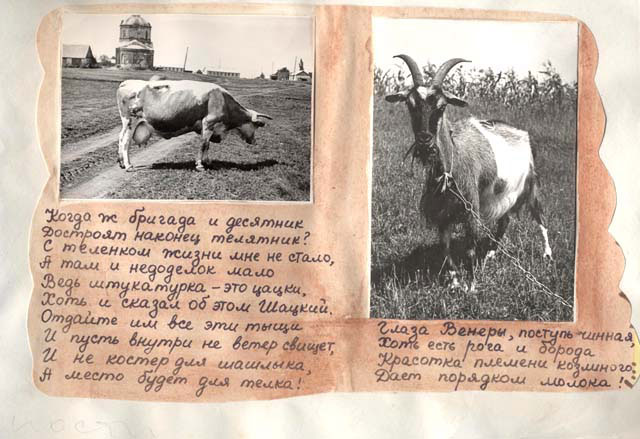 Когда ж бригада и десятник
Достроят наконец телятник?
С теленком жизни мне не стало,
А там и недоделок мало
Ведь штукатурка – это цацки,
Хоть и сказал об этом Шацкий.
Отдайте им все эти тыщи
И пусть внутри не ветер свищет,
И не костер для шашлыка,
А место будет для телка!
Глаза Венеры, поступь чинная,
Хоть есть рога и борода
Красотка племени козлиного,
Дает порядком молока!